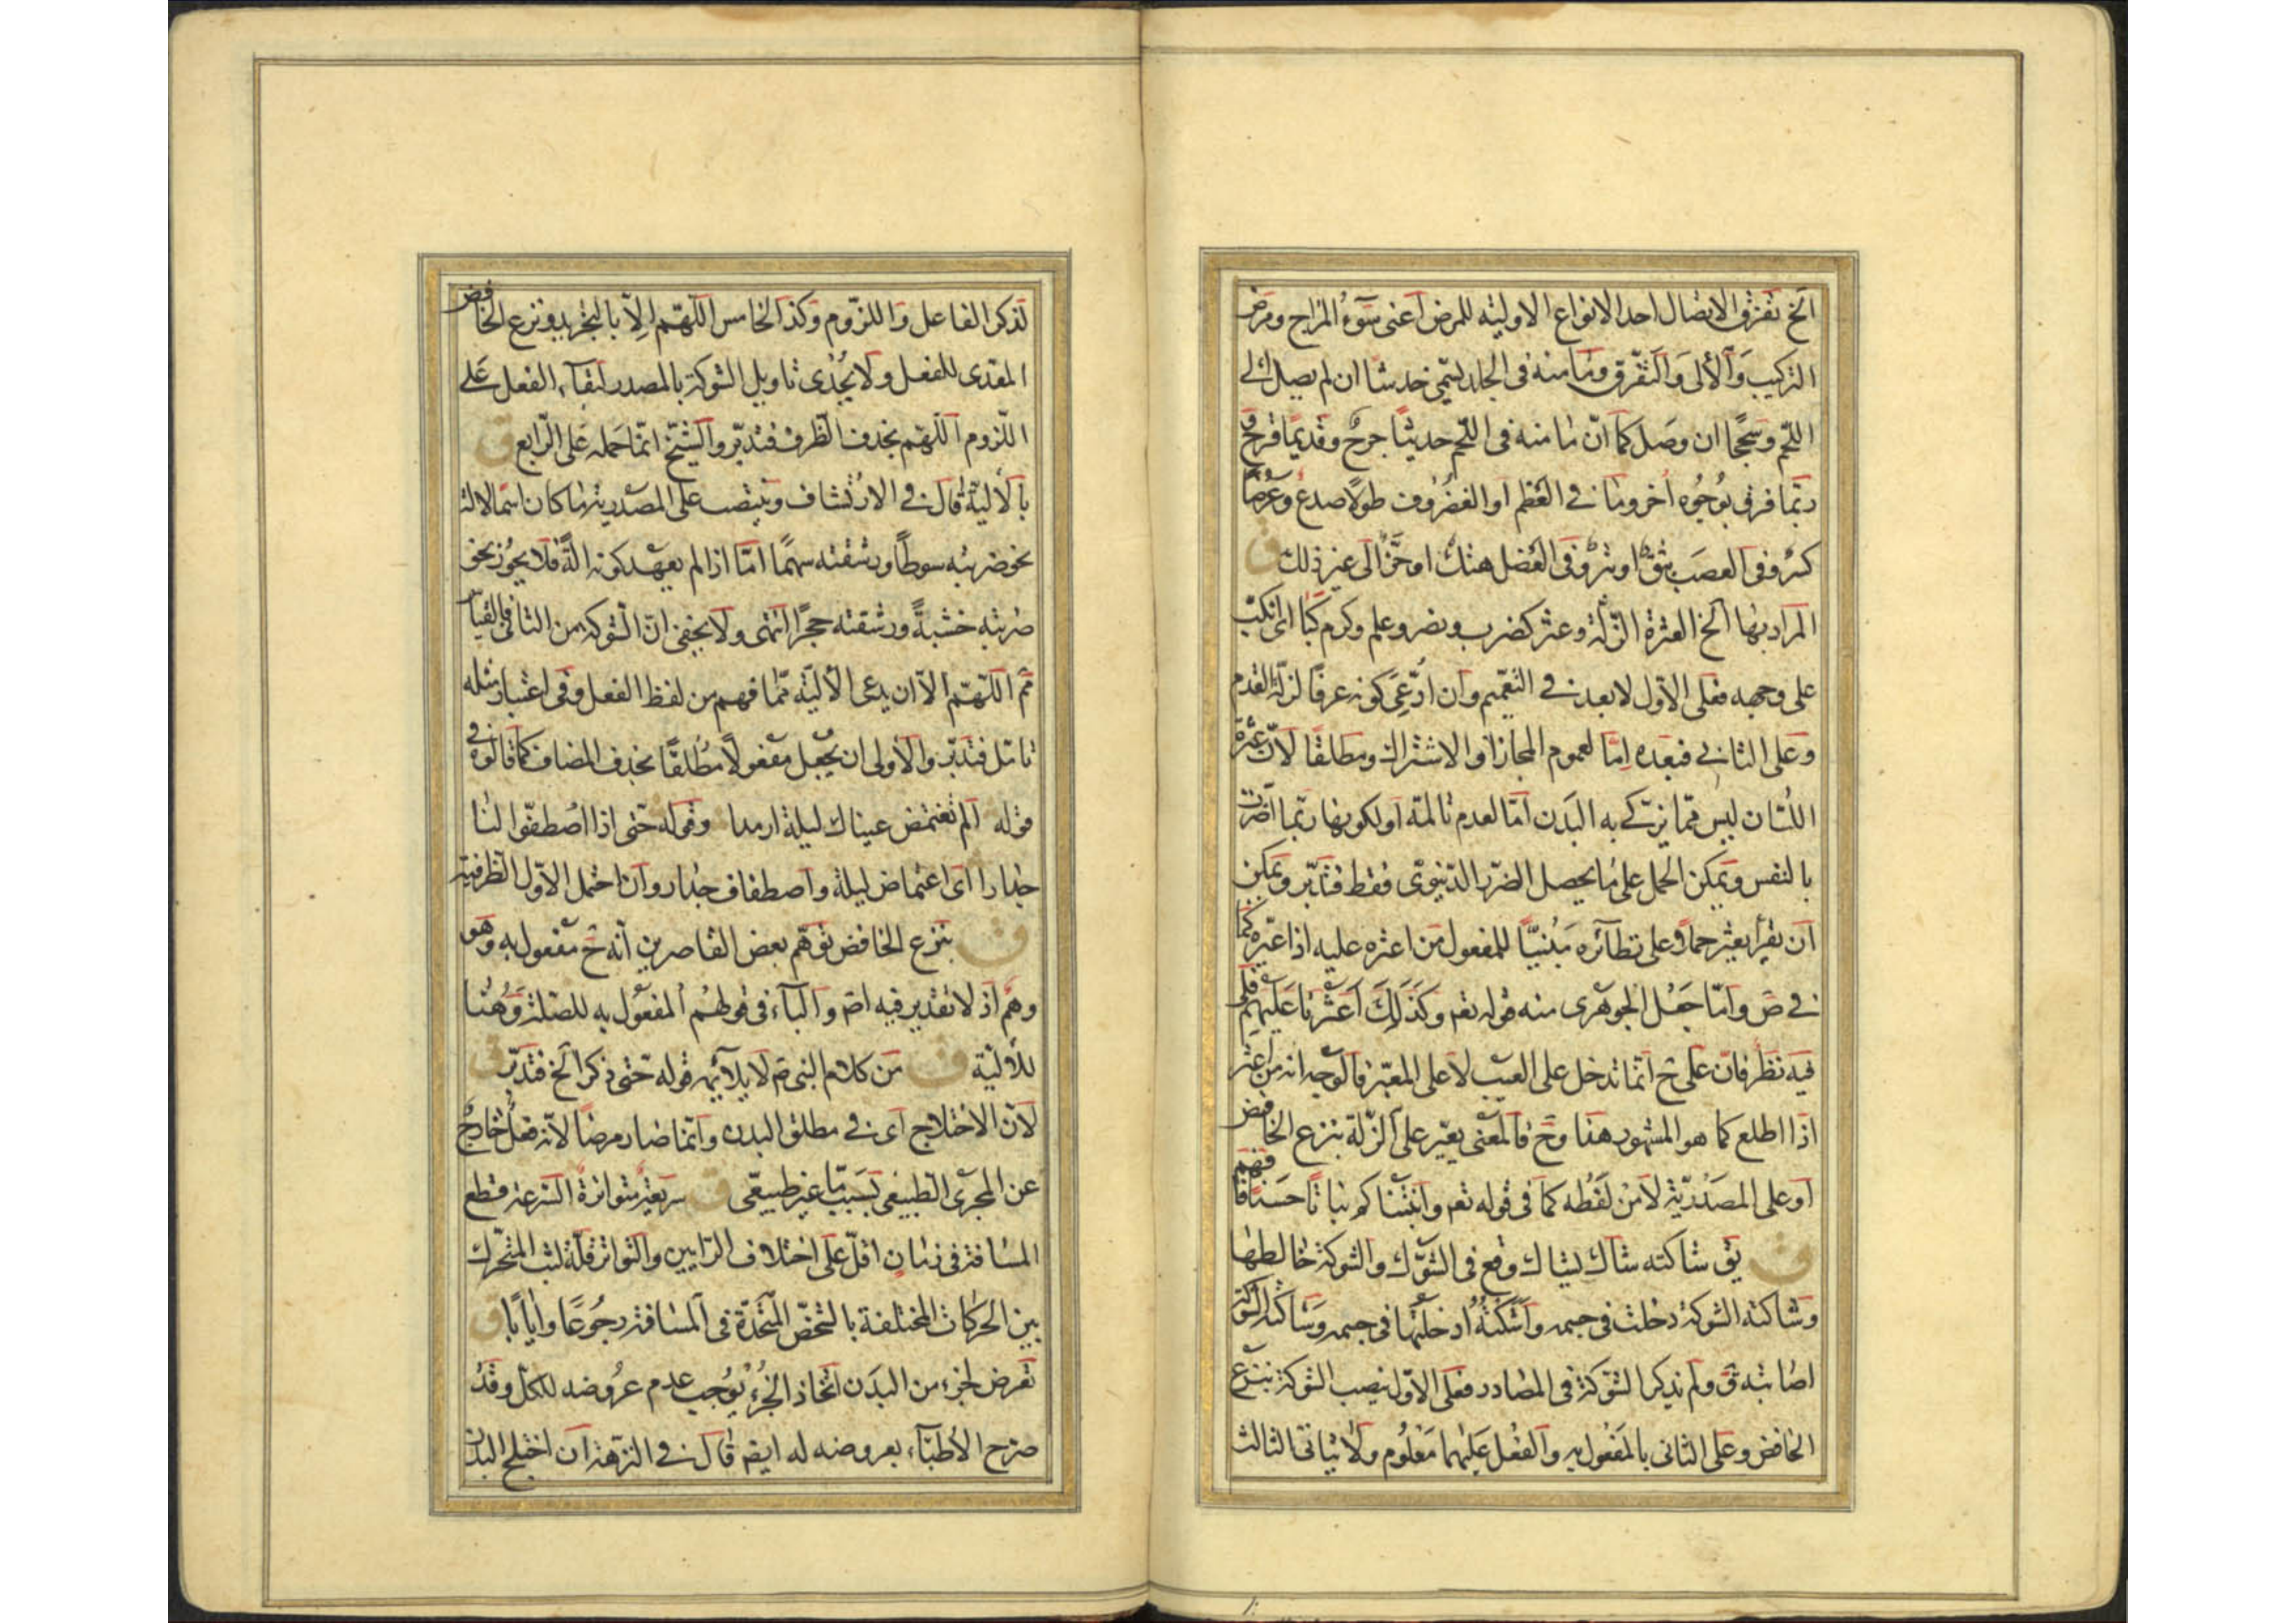 الخ تفرق الاتصال احد الانواع الاولية للمرض اعنى سوء المزاج ومرض
التركيب والآلى والتفرق وما منه فى الجلد يسمى خدشا ان لم يصل الى
اللحم وسحجا ان وصل كما ان ما منه فى اللحم حديثا جرح وقديما قرح و
ربما فرق بوجوه اخر وما فى العظم او الغضروف طولا صدع وعرضا
كسر وفى العصب شق او بتر وفى العضل هتك او حز الى غير ذلك ق
المراد بها الخ العثرة الزلة وعثر كضرب ونصر وعلم وكرم كبا اى انكب
على وجهه فعلى الاول لا بعد فى التعميم وان ادعى كونه عرفا لزلة القدم
وعلى الثانى فبعده اما لعموم المجاز او الاشتراك ومطلقا لان عثرة
اللسان ليس مما يزكى به البدن اما لعدم تالمه او لكونها ربما اضرت
بالنفس ويمكن الحمل على ما يحصل الضرر الدنيوى فقط فتدبر ويمكن
ان يقرأ يعثر حملا على نظائره مبنيا للمفعول من اعثره عليه اذا عيره كما
فى ص واما جعل الجوهرى منه قوله تعم وكذلك اعثرنا عليهم فلى
فيه نظر فان على ح انما تدخل على العيب لا على المعير فالوجه انه من اعثر
اذا اطلع كما هو المشهور هنا وح فالمعنى يعير على الزلة بنزع الخافض
او على المصدرية لا من لفظه كما فى قوله تعم وانبتنا كم نباتا حسنا فافهم
ق يق شاكته شاك يشاك وقع فى الشوك والشوكة خالطها
وشاكته الشوكة دخلت فى جسمه واشكته ادخلتها فى جسمه وشاكته الشوكة
اصابته ق ولم يذكر الشوكة فى المصادر فعلى الاول نصب الشوكة بنزع
الخافض وعلى الثانى بالمفعول به والفعل عليهما معلوم ولا يتاتى الثالث
لذكر الفاعل واللزوم وكذا الخامس اللهم الا بالتجريد ونزع الخافض
المعدى للفعل ولا يجدى تاويل الشوكة بالمصدر لبقاء الفعل على
اللزوم اللهم بحذف الظرف فتدبر والشيخ انما حمله على الرابع ق
بالآلية قال فى الارتشاف وينتصب على المصدرية ما كان اسما لالة
نحو ضربته سوطا ورشقته سهما اما اذا لم يعهد كونه الة فلا يجوز نحو
ضربته خشبة ورشقته حجرا انتهى ولا يخفى ان الشوكة من الثانى فالقياس
ثم اللهم الا ان يدعى الآلية مما فهم من لفظ الفعل وفى اعتبار مثله
تامل فتدبر والاولى ان يجعل مفعولا مطلقا بحذف المضاف كما قالوه فى
قوله الم تغتمض عيناك ليلة ارمدا وقوله حتى اذا اصطفوا لنا
جدارا اى اغتماض ليلة واصطفاف جدار وان احتمل الاول الظرفية
ق بنزع الخافض توهم بعض القاصرين انه ح مفعول به وهو
وهم اذ لا تقدير فيه اصم والباء فى قولهم المفعول به للصلة وهنا
للآلية ق من كلام النبى ص لا يلائمه قوله حتى ذكر الخ فتدبر ق
لان الاختلاج اى فى مطلق البدن وانما صار مرضا لانه فعل خارج
عن المجرى الطبيعى بسبب ما غير طبيعى ق سريعة متواترة السرعة قطع
المسافة فى زمان اقل على اختلاف الرايين والتواتر قلة لبث المتحرك
بين الحركات المختلفة بالشخص المتحدة فى المسافة رجوعا وايابا ق
تعرض لجزء من البدن اتخاذ الجزء يوجب عدم عروضه للكل وقد
صرح الاطباء بعروضه له ايضم قال فى النزهة ان اختلج البدن